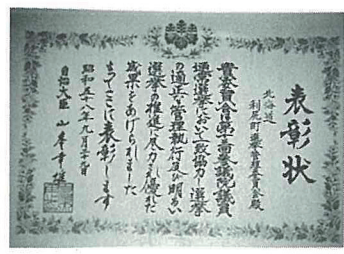 表彰状
北海道
利尻町選挙管理委員会殿
貴委員会は第十三回参議院議員
通常選挙において一致協力し選挙
の適正な管理執行及び明るい
選挙の推進に尽力され優れた
成果をあげられました
よってここに表彰します
昭和五十八年九月三十日
自治大臣 山本幸雄